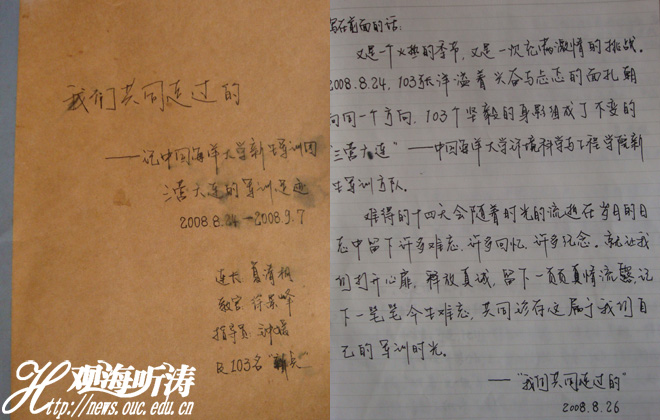 我们共同走过的
——记中国海洋大学新生军训团
三营六连的军训足迹
2008.8.24—2008.9.7
连长
教官 徐荣峰
指导员
及103名"新兵"
写在前面的话:
又是一个火热的季节,又是一次充满激情的挑战。
2008.8.24,103张洋溢着兴奋与忐忑的面孔朝
向同一个方向,103个坚毅的身影组成了不变的
"三营六连"——中国海洋大学环境科学与工程学院新
生军训方队。
难得的十四天会随着时光的流逝在岁月的日
志中留下许多难忘、许多回忆、许多纪念。就让我
们打开心扉,释放真诚,留下一页页真情流露,记
下一笔笔今生难忘,共同珍存这属于我们自
己的军训时光。
——"我们共同走过的"
2008.8.26
观海听涛
Http://news.ouc.edu.cn